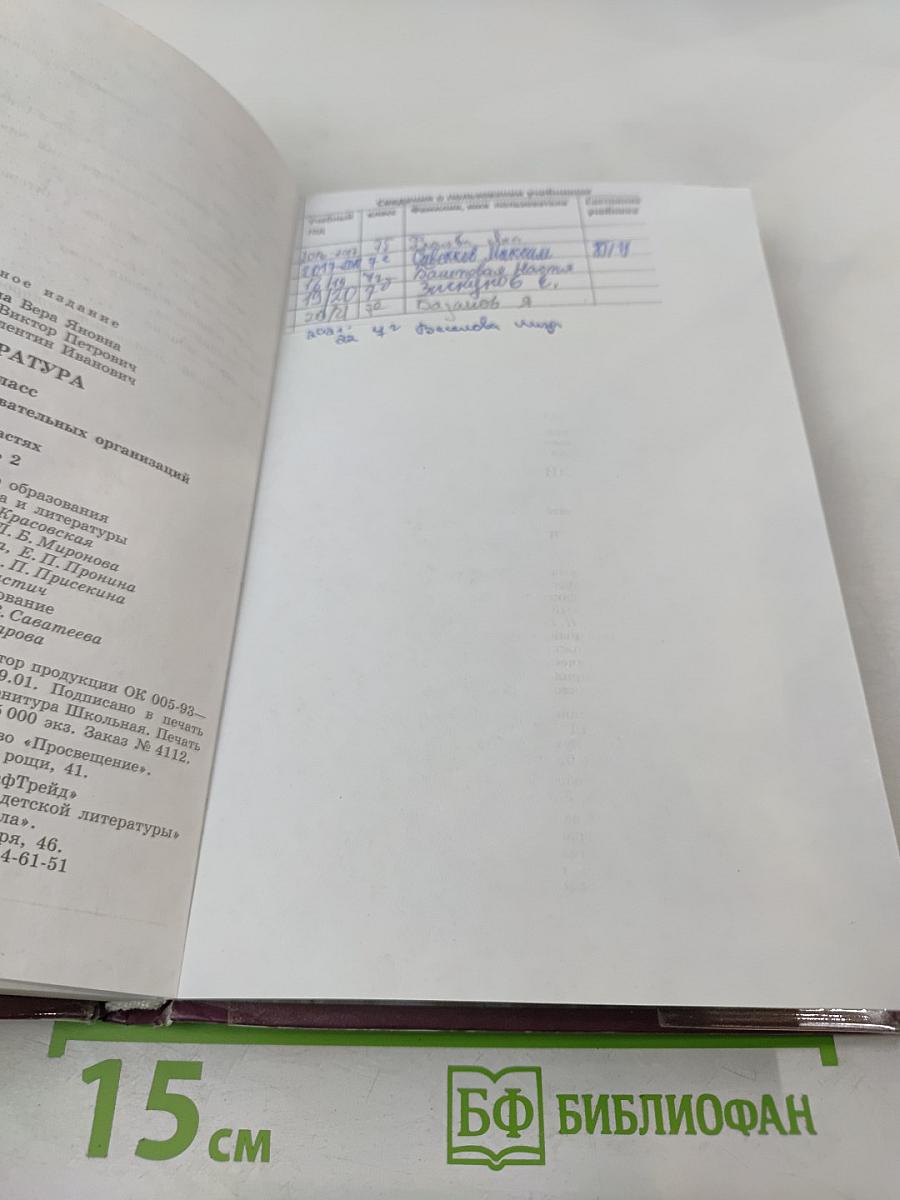 ное издание
на Вера Яновна
Виктор Петрович
лентин Иванович
РАТУРА
ласс
вательных организаций
астях
2
образования
а и литературы
Красовская
Л. Б. Миронова
а, Е. П. Пронина
. П. Присекина
стич
ование
Саватеева
арова
тор продукции ОК 005-93—
9.01. Подписано в печать
рнитура Школьная. Печать
5 000 экз. Заказ № 4112.
во «Просвещение».
рощи, 41.
афТрейд»
детской литературы»
ла».
ря, 46.
4-61-51
Сведения о пользовании учебником
Учебный год
класс
Фамилия, имя пользователя
Состояние учебника
2016-2017
2017
Максим
18/19 Настя
19/20 7
20/21 Базанов Я
2021-22 7г
15 см
БФ БИБЛИОФАН